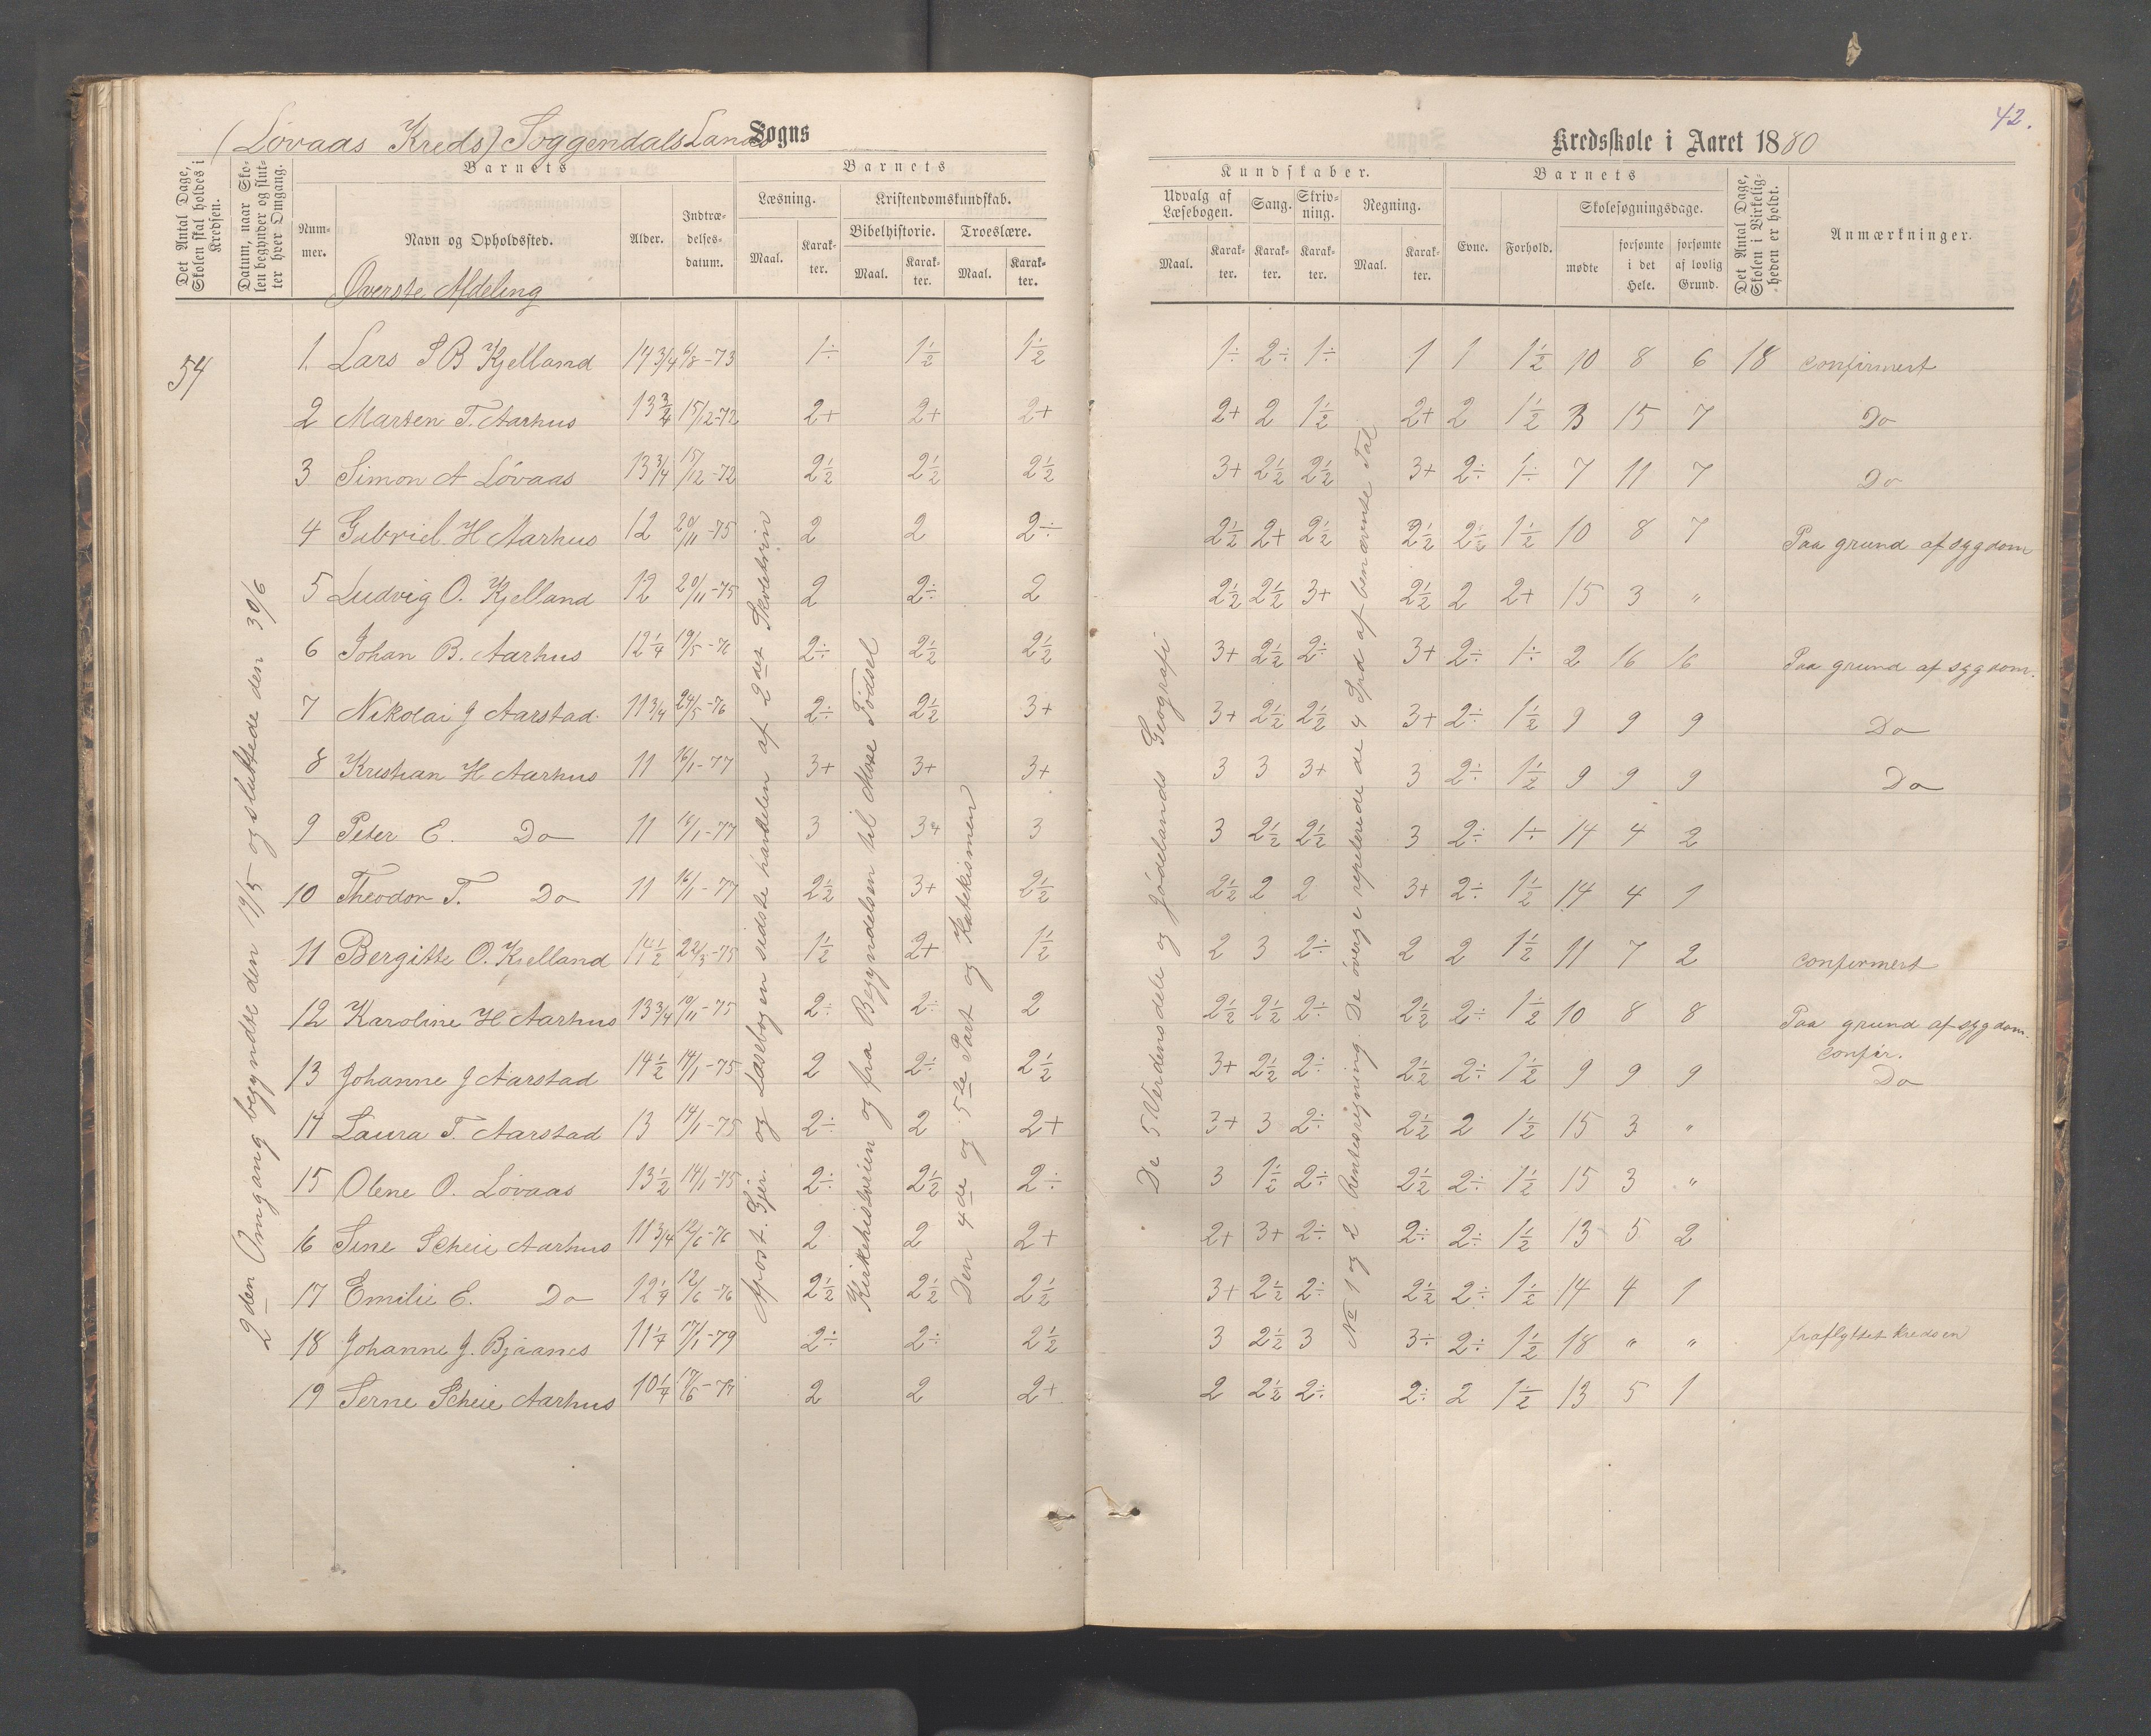 42.
(Lovaas Kreds) Soggendals Lands Sogns Kredsskole i Aaret 1880
Det Antal Dage, Skolen skal holdes i Kredsen.
Datum, naar Skolen begynder og slutter hver Omgang.
Barnets
Nummer.
Navn og Opholdssted.
Alder.
Indtrædelsesdatum.
Barnets
Læsning.
Maal.
Karakter.
Kristendomskundskab.
Bibelhistorie.
Maal.
Karakter.
Troeslære.
Maal.
Karakter.
Kundskaber.
Udvalg af Læsebogen.
Maal.
Karakter.
Sang.
Karakter.
Skrivning.
Karakter.
Regning.
Maal.
Karakter.
Barnets
Evne.
Forhold.
Skolesøgningsdage.
mødte
forsømte i det Hele.
forsømte af lovlig Grund.
Det Antal Dage, Skolen i Virkeligheden er holdt.
Anmærkninger.
Øverste Afdeling
54
2den Omgang begyndte den 19/5 og sluttede den 30/6
Apost. Gjer. og Læsebogen sidste handelen af 2det Skoletrin
Kirkehistorien og fra Begyndelsen til Mose Fødsel
Den 4de og 5te Part og Katekismen
De 5 Verdensdele og Jødelands Geografi
No 1 og 2 Rentesregning. De øvrige repeterede de 4 Spd af benævnte Tal
1. Lars S B Kjelland 14 3/4 6/8-73 1÷ 1½ 1½ 1÷ 2÷ 1÷ 1 1 1½ 10 8 6 18 confirmert
2 Marten T. Aarhus 13 3/4 15/12-72 2+ 2+ 2+ 2+ 2 1½ 2+ 2 1½ 3 15 7 Do
3 Simon A Lövaas 13 3/4 15/12-72 2½ 2½ 2½ 3+ 2½ 2½ 3+ 2÷ 1÷ 7 11 7 Do
4 Gabriel H Aarhus 12 20/11-75 2 2 2÷ 2½ 2+ 2½ 2½ 2½ 1½ 10 8 7 Paa grund af sygdom
5 Ludvig O. Kjelland 12 20/11-75 2 2÷ 2 2½ 2½ 3+ 2½ 2 2+ 15 3 "
6 Johan B. Aarhus 12¼ 19/5-76 2÷ 2½ 2½ 3+ 2½ 2÷ 3+ 2÷ 1÷ 2 16 16 Paa grund af sygdom.
7 Nikolai J Aarstad. 11 3/4 24/5-76 2÷ 2½ 3+ 3+ 2½ 2½ 3+ 2÷ 1½ 9 9 9 Do
8 Kristian H Aarhus 11 16/1-77 3+ 3+ 3+ 3 3 3+ 3 2÷ 1½ 9 9 9 Do
9 Peter E. Do 11 16/1-77 3 3+ 3 3 2½ 2½ 3 2÷ 1÷ 14 4 2
10 Theodor T. Do 11 16/1-77 2½ 3+ 2½ 2½ 2 2 3+ 2÷ 1½ 14 4 1
11 Bergitte O. Kjelland 14½ 22/3-75 1½ 2+ 1½ 2 3 2÷ 2 2 1½ 11 7 2 confirmert
12 Karoline H Aarhus 13 3/4 19/11-75 2÷ 2÷ 2 2½ 2½ 2÷ 2½ 2÷ 1½ 10 8 8 Paa grund af sygdom.
13 Johanne J Aarstad 14½ 14/1-75 2 2÷ 2½ 3+ 2½ 2÷ 2½ 2÷ 1½ 9 9 9 confir. Do
14 Laura T. Aarstad 13 14/1-75 2÷ 2 2+ 3+ 3 2÷ 2½ 2 1½ 15 3 "
15 Olene O. Lovaas 13½ 14/1-75 2÷ 2½ 2÷ 3 1½ 2÷ 2½ 2÷ 1½ 15 3 "
16 Sine Scheie Aarhus 11 3/4 12/6-76 2 2 2+ 2+ 3+ 2÷ 2÷ 2÷ 1½ 13 5 2
17 Emilie E. Do 12¼ 12/6-76 2½ 2½ 2½ 3+ 2½ 2÷ 2½ 2÷ 1½ 14 4 1
18 Johanne J. Bjaanes 11¼ 17/1-79 2÷ 2÷ 2½ 3 2½ 3 3÷ 2÷ 1½ 18 " " fraflyttet kredsen
19 Serne Scheie Aarhus 10¼ 17/6-77 2 2 2+ 2 2½ 2÷ 2÷ 2 1½ 13 5 1